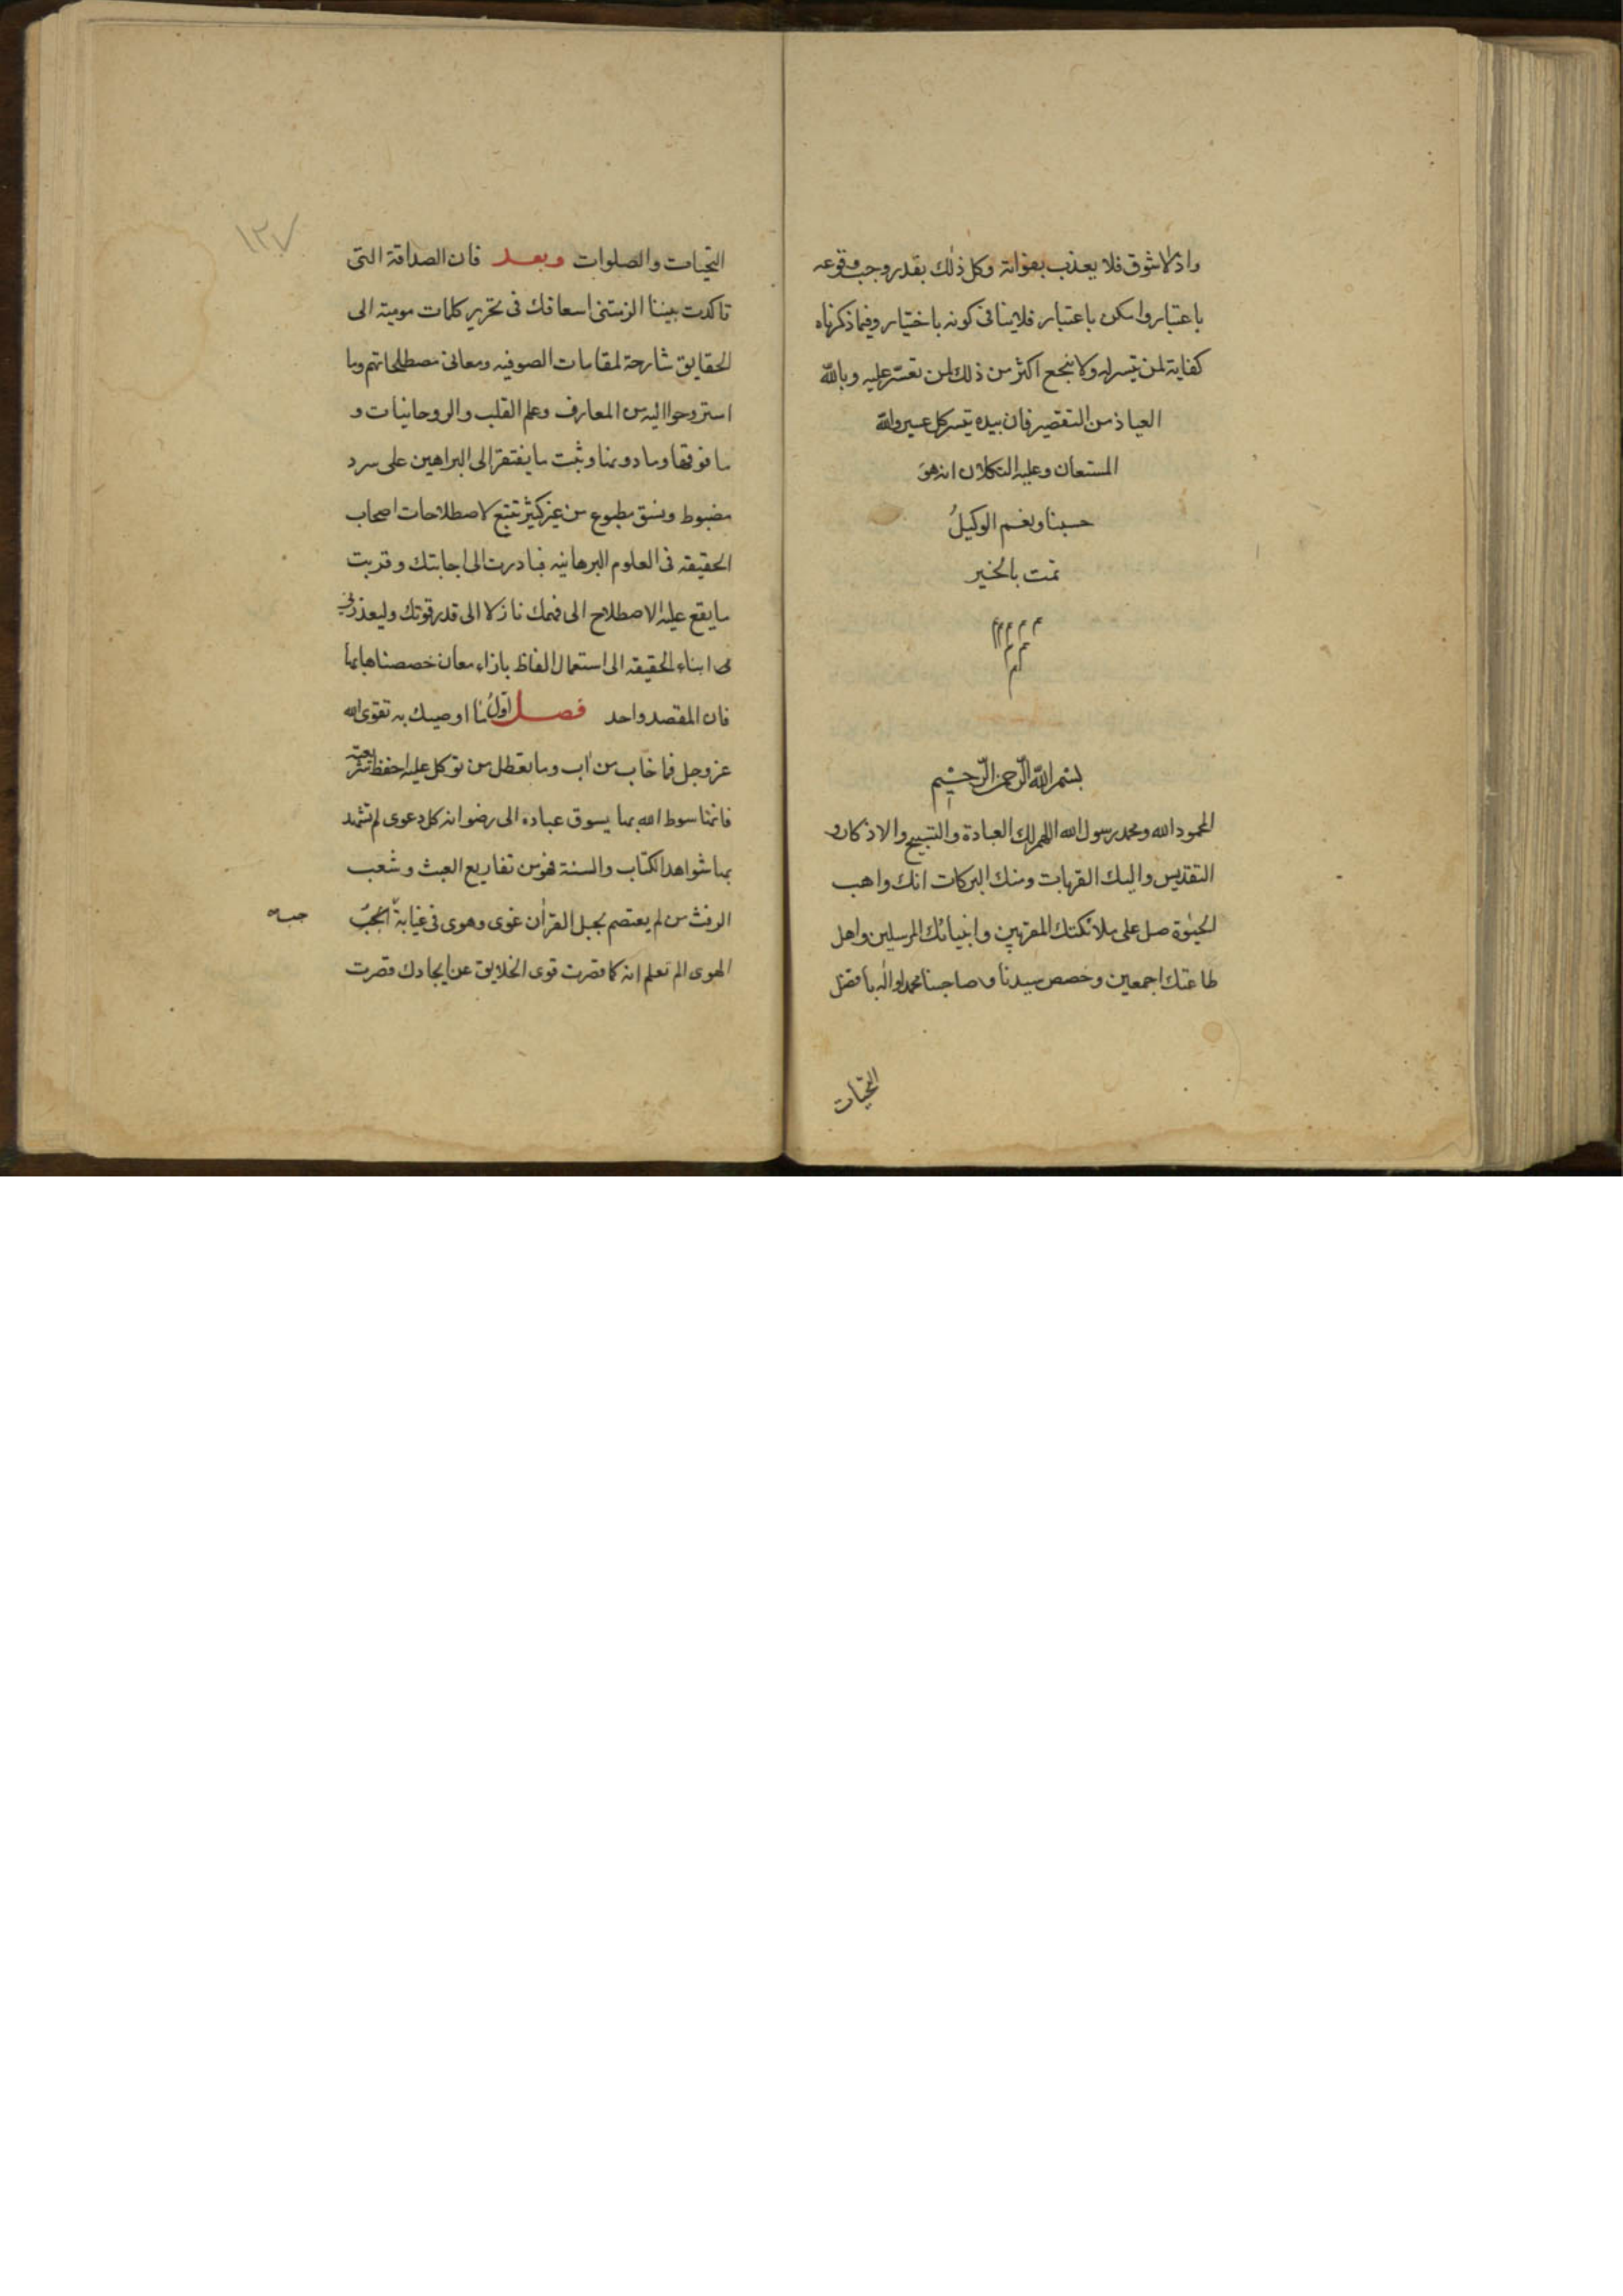 واذ لا شوق فلا يعذب بفواته وكل ذلك بقدر وجب وقوعه
باعتبار وامكن باعتبار فلاينافى كونه باختيار وفيما ذكرناه
كفاية لمن تيسر له ولا ينجع اكثر من ذلك لمن تعسّر عليه وبالله
العياذ من التقصير فان بيده تيسر كل عسير والله
المستعان وعليه التكلان انه هو
حسبنا ونعم الوكيلُ
تمت بالخير
م م م م م
م م
م
بسم الله الرّحمن الرّحيم
المحمود الله ومحمد رسول الله اللهم لك العبادة والتسبيح والاذكار و
التقديس واليك القربات ومنك البركات انك واهب
الحيوة صل على ملائكتك المقربين وانبيائك المرسلين واهل
طاعتك اجمعين وخصص سيدنا وصاحبنا محمد واله بافضل
التحيات
١٢٧
التحيات والصلوات وبعد فان الصداقة التى
تاكدت بيننا الزمتنى اسعافك فى تحرير كلمات موميته الى
الحقايق شارحة لمقامات الصوفيه ومعانى مصطلحاتهم وما
استروحوا اليه من المعارف وعلم القلب والروحانيات و
ما فوقها وما دونها وثبت ما يفتقر الى البراهين على سرد
مضبوط ونسق مطبوع من غير كثير تتبع لاصطلاحات اصحاب
الحقيقه فى العلوم البرهانيه فبادرت الى اجابتك وقربت
ما يقع عليه الاصطلاح الى فهمك نازلا الى قدر قوتك وليعذرنى
ابناء الحقيقه الى استعمال الفاظ بازاء معان خصصناها بها
فان المقصد واحد فصل اوّلُ ما اوصيك به تقوى الله
عز وجل فما خاب من اب وما تعطل من توكل عليه احفظ شريعته
فانها سوط الله بها يسوق عباده الى رضوانه كل دعوى لم تشهد
بها شواهد الكتاب والسنة فهو من تفاريع العبث وشعب
الرفث من لم يعتصم بحبل القران غوى وهوى فى غيابة الجُبّ
جب
الهوى الم تعلم انه كما قصرت قوى الخلايق عن ايجادك قصرت